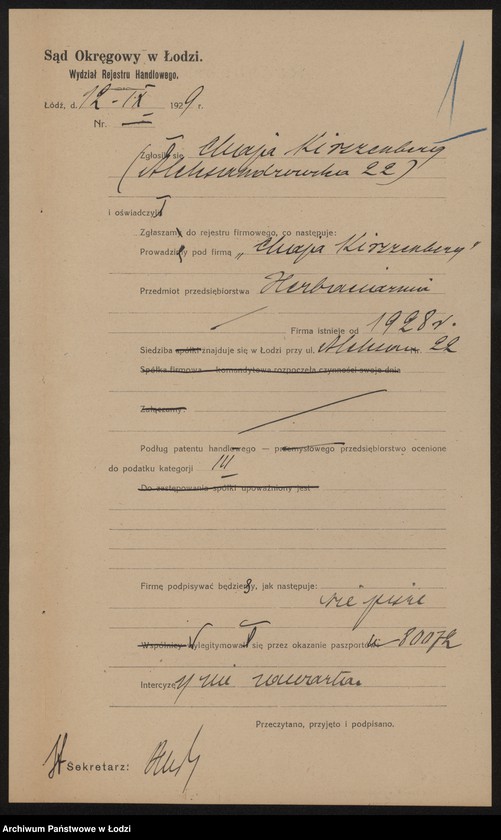 Sąd Okręgowy w Łodzi.
Wydział Rejestru Handlowego.
Łódź, d. 12-IX 1929 r.
Nr.
1
Zgłosił się Chaja Kirszenberg
(Aleksandrowska 22)
i oświadczył
Zgłaszam do rejestru firmowego, co następuje:
Prowadzę pod firmą „Chaja Kirszenberg"
Przedmiot przedsiębiorstwa Herbaciarnia
Firma istnieje od 1928 r.
Siedziba spółki znajduje się w Łodzi przy ul. Aleksan. 22
Spółka firmowa — komandytowa rozpoczęła czynności swoje dnia
Załączamy:
Podług patentu handlowego — przemysłowego przedsiębiorstwo ocenione
do podatku kategorji III
Do zastępowania spółki upoważniony jest
Firmę podpisywać będzie, jak następuje:
nie pisze
Wspólnicy wylegitymowali się przez okazanie paszportów
Intercyzy nie zawarła.
Przeczytano, przyjęto i podpisano.
Sekretarz:
Archiwum Państwowe w Łodzi